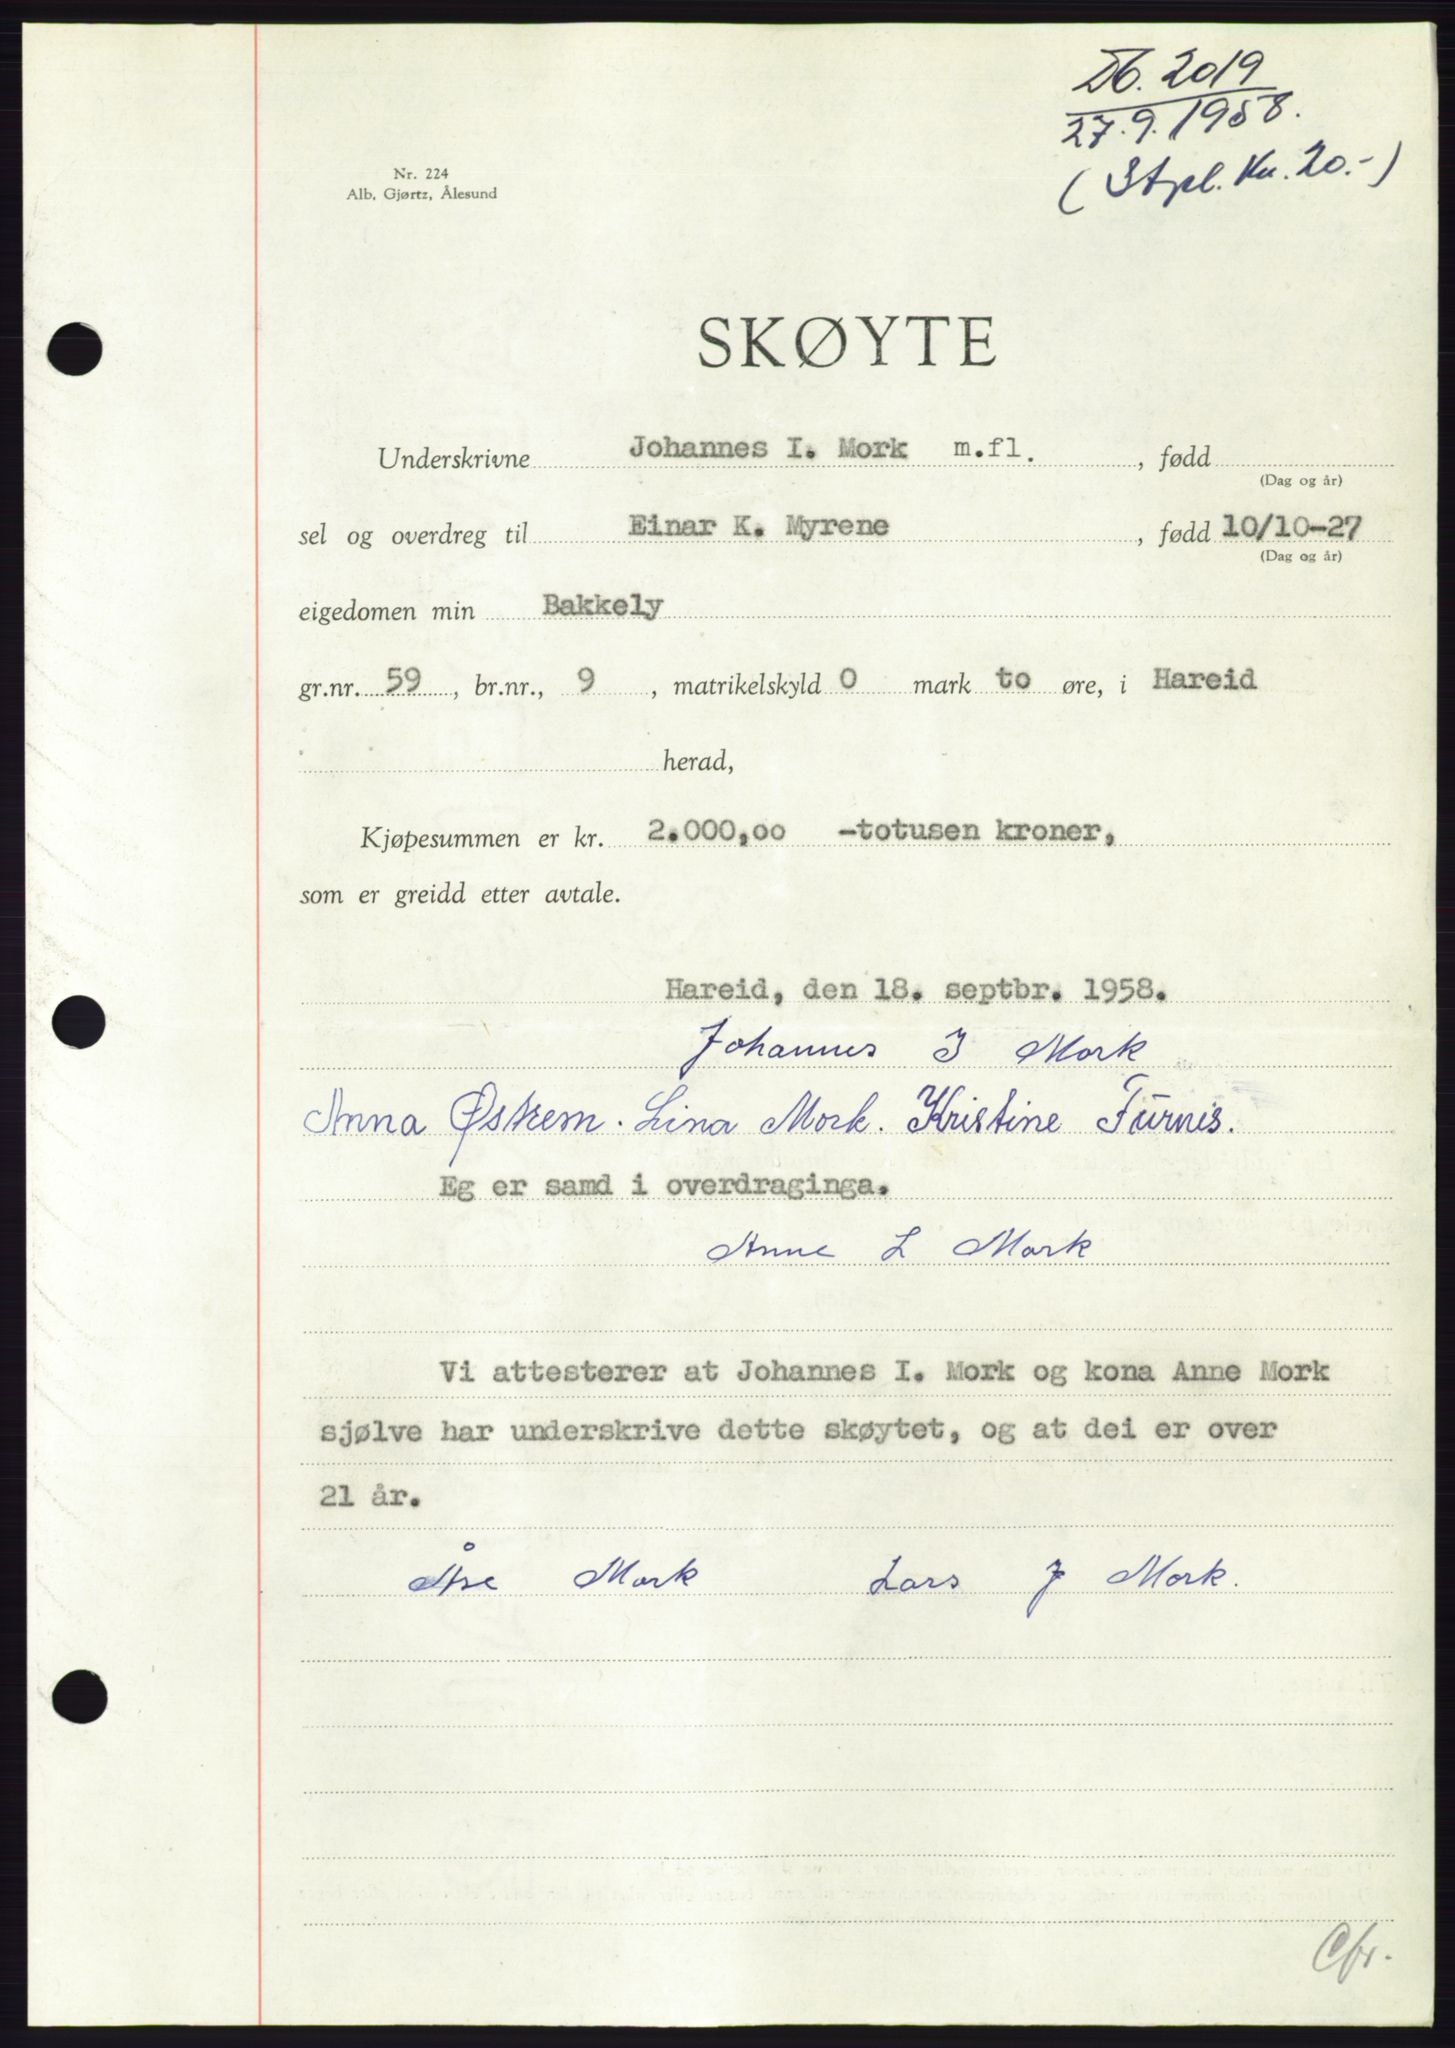 Db. 2019
27.9.1958.
(Stpl. Kr. 20.-)
Nr. 224
Alb. Gjørtz, Ålesund
SKØYTE
Underskrivne Johannes I. Mork m.fl. , fødd
(Dag og år)
sel og overdreg til Einar K. Myrene , fødd 10/10-27
(Dag og år)
eigedomen min Bakkely
gr.nr. 59 , br.nr., 9 , matrikelskyld 0 mark to øre, i Hareid
herad,
Kjøpesummen er kr. 2.000,oo -totusen kroner,
som er greidd etter avtale.
Hareid, den 18. septbr. 1958.
Johannes I Mork
Anna Østrem. Lina Mork. Kristine Furnes.
Eg er samd i overdraginga.
Anne L Mork
Vi attesterer at Johannes I. Mork og kona Anne Mork
sjølve har underskrive dette skøytet, og at dei er over
21 år.
Åse Mork Lars J Mork.